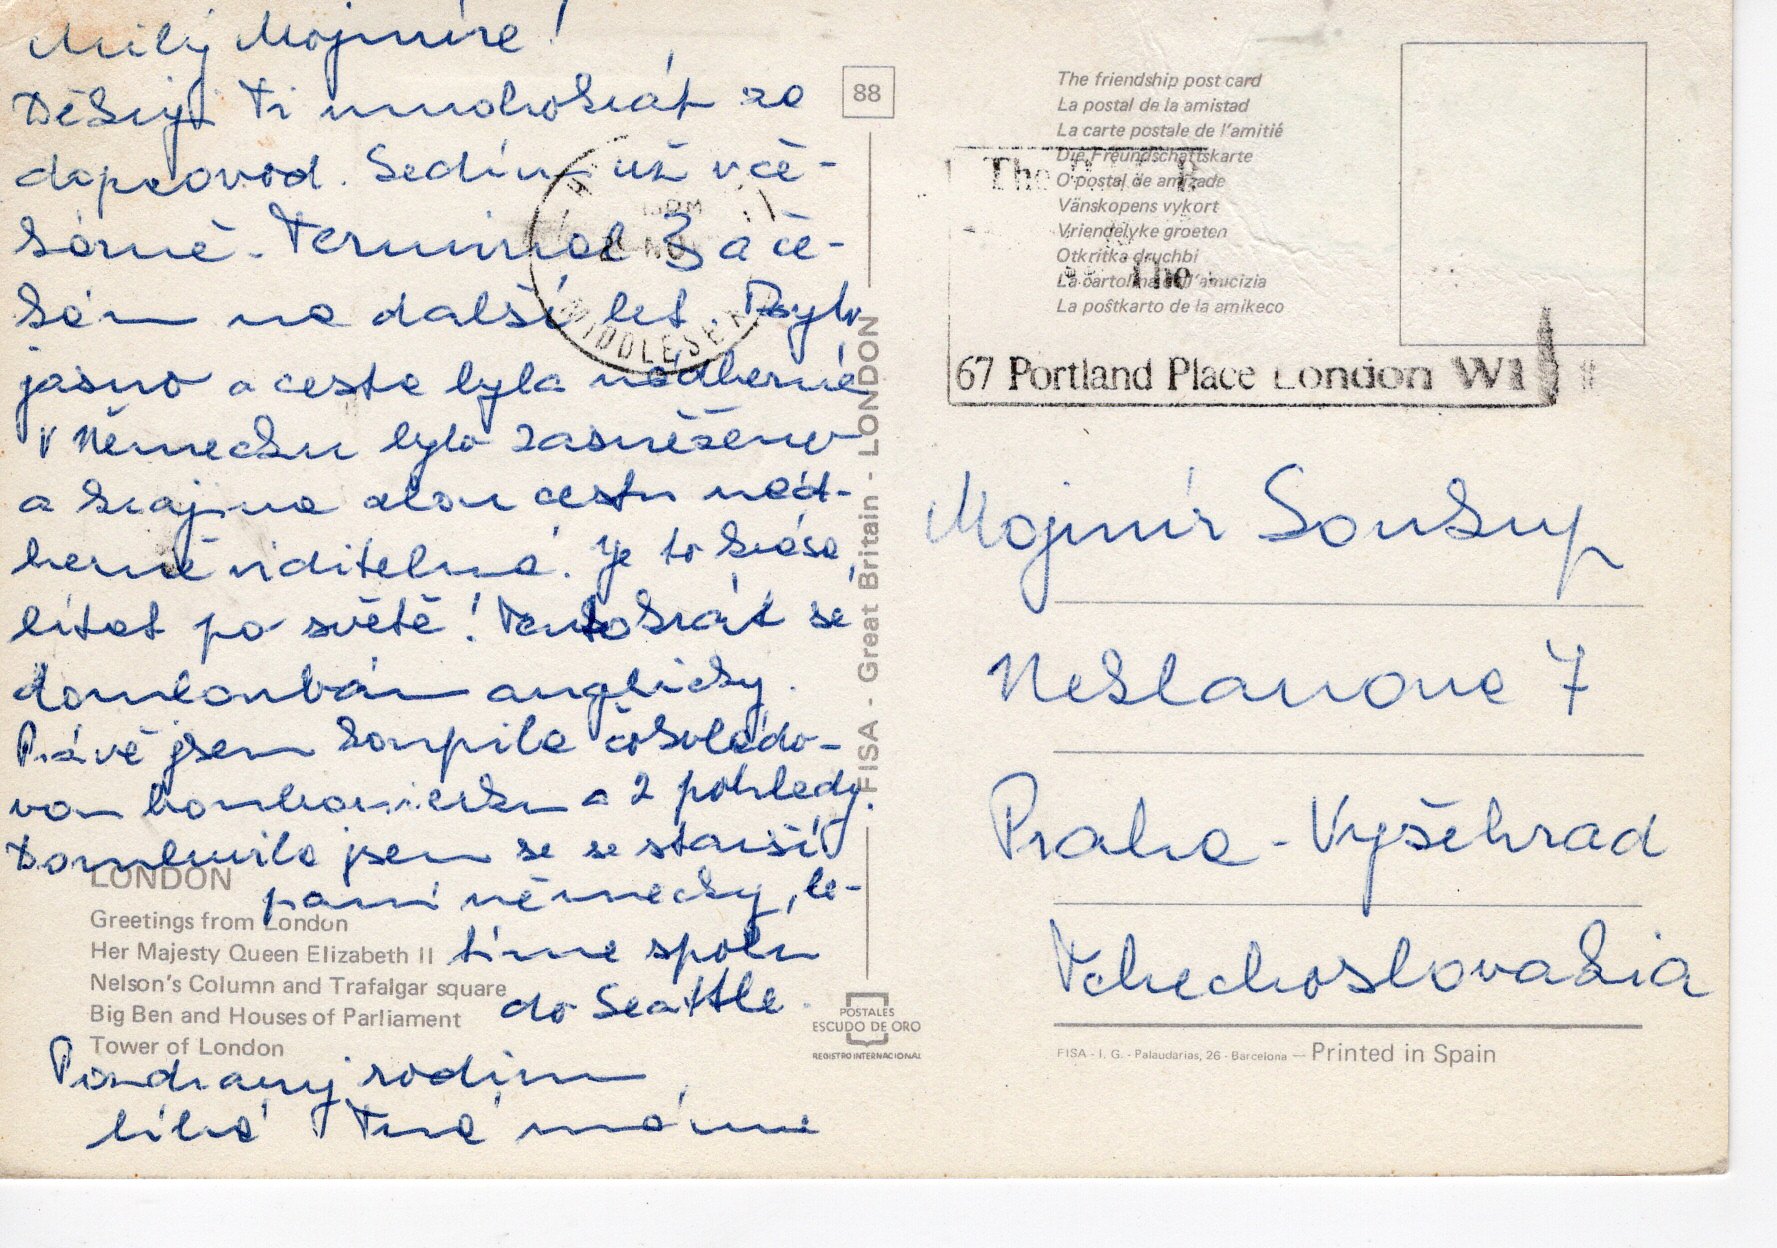 Milý Mojmíre!
Děkuji Ti mnohokrát za
doprovod. Sedím už v če-
kárně. Terminal 3 a če-
kám na další let. Bylo
jasno a cesta byla nádherná
V Německu bylo zasněženo
a krajina celou cestu nád-
herně viditelná. Je to krása,
lítat po světě! Tentokrát se
domlouvám anglicky.
Právě jsem koupila čokoládo-
vou bonboniérku a 2 pohledy.
Domluvila jsem se se starší
paní německy, le-
tíme spolu
do Seattle.
Pozdravuj rodinu
líbá Tvá máma
LONDON
Greetings from London
Her Majesty Queen Elizabeth II
Nelson's Column and Trafalgar square
Big Ben and Houses of Parliament
Tower of London
88
FISA - Great Britain - LONDON
POSTALES
ESCUDO DE ORO
REGISTRO INTERNACIONAL
MIDDLESEX
The friendship post card
La postal de la amistad
La carte postale de l'amitié
Die Freundschaftskarte
O postal de amizade
Vänskopens vykort
Vriendelyke groeten
Otkritka druchbi
La cartolina dell'amicizia
La poŝtkarto de la amikeco
The
The
67 Portland Place London W1
Mojmír Soukup
Neklanova 7
Praha - Vyšehrad
Tchechoslovakia
FISA - I. G. - Palaudarias, 26 - Barcelona — Printed in Spain